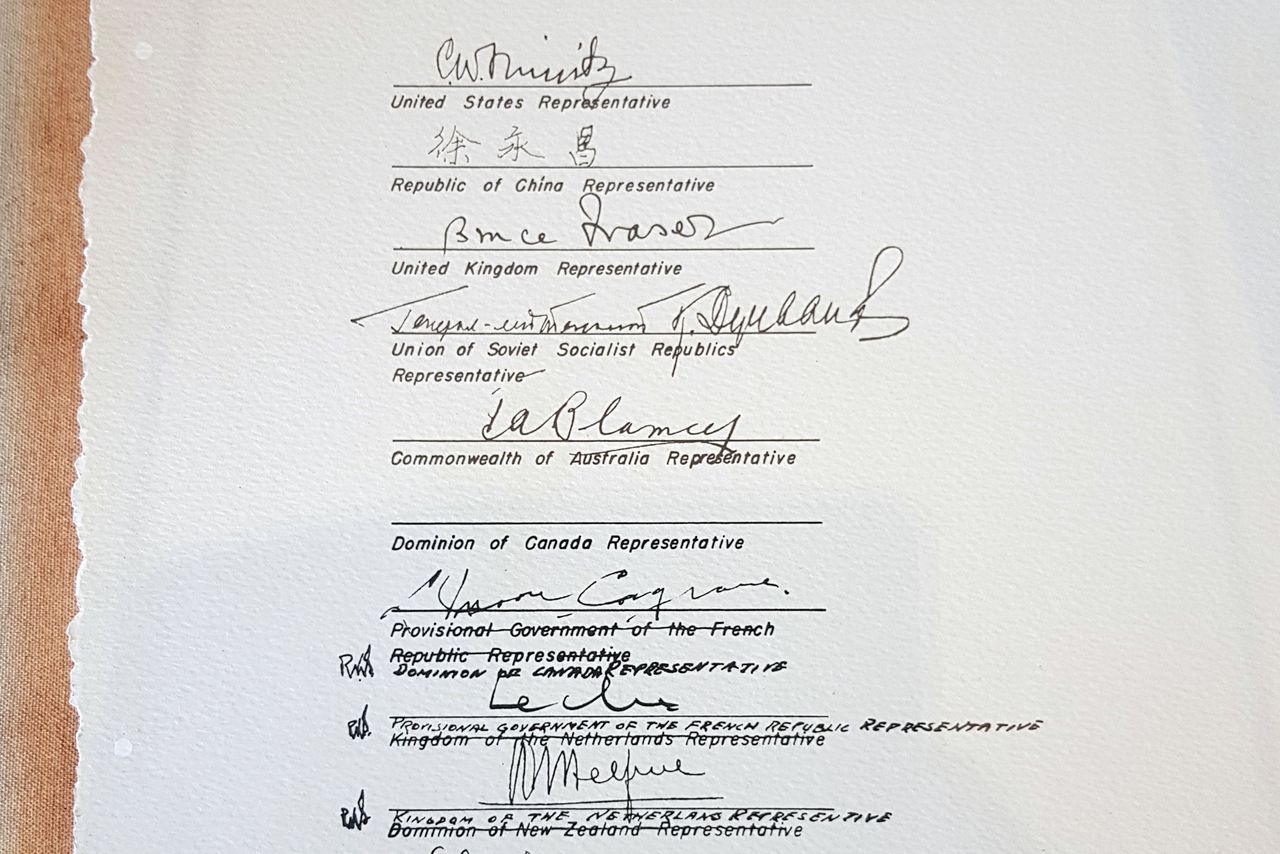 C.W. Nimitz
United States Representative
徐永昌
Republic of China Representative
Bruce Fraser
United Kingdom Representative
Генерал-лейтенант К. Деревянко
Union of Soviet Socialist Republics
Representative
T.A. Blamey
Commonwealth of Australia Representative
Dominion of Canada Representative
Moore Cosgrave.
Provisional Government of the French
Republic Representative
DOMINION OF CANADA REPRESENTATIVE
Le Clerc
PROVISIONAL GOVERNMENT OF THE FRENCH REPUBLIC REPRESENTATIVE
Kingdom of the Netherlands Representative
Helfrich
KINGDOM OF THE NETHERLAND REPRESENTIVE
Dominion of New Zealand Representative